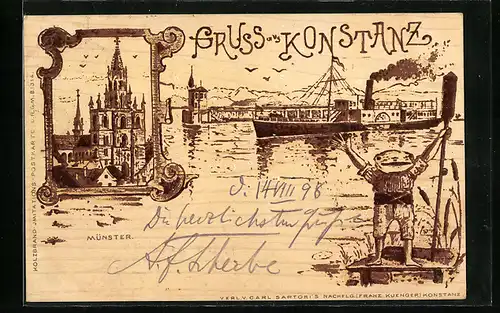 GRUSS aus KONSTANZ
HOLZBRAND-IMITATIONS-POSTKARTE
MÜNSTER.
d. 14/VIII 98
Die herzlichsten Grüsse
VERL. V. CARL SARTORI'S NACHFLG. (FRANZ KUENGER) KONSTANZ